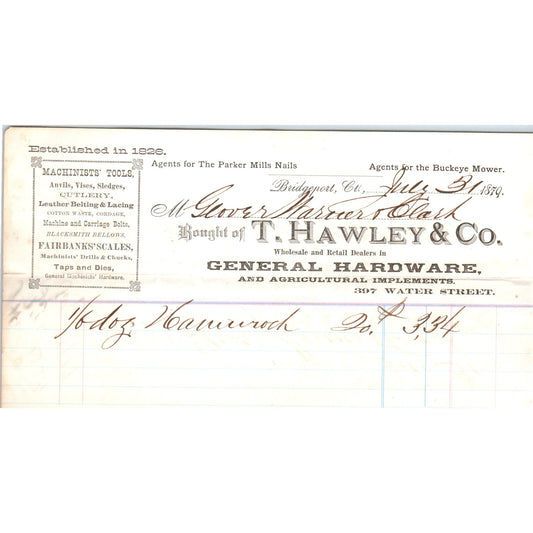 Established in 1826.
Agents for The Parker Mills Nails
Agents for the Buckeye Mower.
MACHINISTS' TOOLS,
Anvils, Vises, Sledges,
CUTLERY,
Leather Belting & Lacing
COTTON WASTE, CORDAGE,
Machine and Carriage Bolts,
BLACKSMITH BELLOWS,
FAIRBANKS' SCALES,
Machinists' Drills & Chucks,
Taps and Dies,
General Machinists' Hardware.
Bridgeport, Ct., July 31 1879.
M Glover Warner & Clark
Bought of T. HAWLEY & CO.
Wholesale and Retail Dealers in
GENERAL HARDWARE,
AND AGRICULTURAL IMPLEMENTS.
397 WATER STREET.
1/6 doz 20. $ 3,34